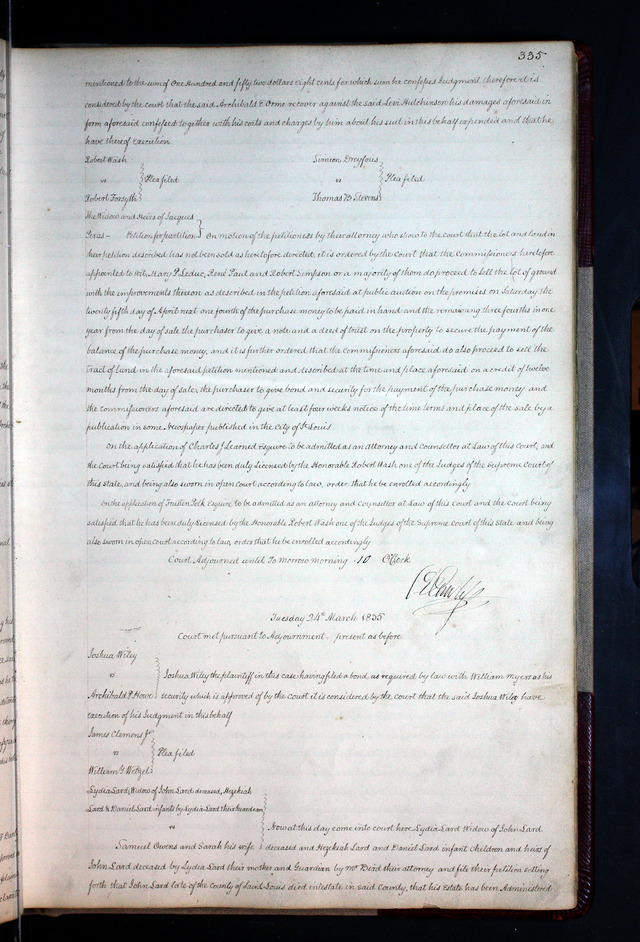 335
mentioned to the sum of One Hundred and fifty two dollars eight cents for which sum he confesses Judgment therefore it is
considered by the court that the said Archibald E Orme recover against the said Levi Hutchinson his damages aforesaid in
form aforesaid confessed together with his costs and charges by him about his suit in this behalf expended and that he
have thereof Execution
Robert Wash
vs Plea filed
Robert Forsyth
Simeon Dreyfous
Plea filed
Thomas B Stevens
The Widow and Heirs of Jacques
Petition for partition On motion of the petitioners by their attorney who show to the court that the lot and land in
their petition described has not been sold as heretofore directed it is ordered by the Court that the Commissioners heretofore
appointed to wit, Mary P Leduc, René Paul and Robert Simpson or a majority of them do proceed to sell the lot of ground
with the improvements thereon as described in the petition aforesaid at public auction on the premises on Saturday the
twenty fifth day of April next one fourth of the purchase money to be paid in hand and the remaining three fourths in one
year from the day of sale the purchaser to give a note and a deed of trust on the property to secure the payment of the
balance of the purchase money, and it is further ordered that the commissioners aforesaid do also proceed to sell the
tract of land in the aforesaid petition mentioned and described at the time and place aforesaid on a credit of twelve
months from the day of sale, the purchaser to give bond and security for the payment of the purchase money and
the commissioners aforesaid are directed to give at least four weeks notice of the time terms and place of the sale by a
publication in some Newspaper published in the City of St Louis
On the application of Charles J Learned Esquire to be admitted as an attorney and counsellor at Law of this Court, and
the Court being satisfied that he has been duly licensed by the Honorable Robert Wash one of the Judges of the Supreme Court of
this state, and being also sworn in open court according to law, order that he be enrolled accordingly
On the application of Trusten Polk Esquire to be admitted as an attorney and Counsellor at Law of this Court and the Court being
satisfied that he has been duly licensed by the Honorable Robert Wash one of the Judges of the Supreme Court of this State and being
also sworn in open court according to law, order that he be enrolled accordingly
Court Adjourned until To morrow morning 10 OClock
Tuesday 24th March 1835
Court met pursuant to Adjournment present as before
Joshua Wiley
vs Joshua Wiley the plaintiff in this case having filed a bond as required by law with William Myers as his
Archibald P. Howe security which is approved of by the Court it is considered by the court that the said Joshua Wiley have
execution of his Judgment in this behalf
James Clemens Jr
vs Plea filed
William G Wetzel
Lydia Lard, Widow of John Lard deceased, Hezekiah
Lard & Daniel Lard infants by Lydia Lard their Guardian
vs Now at this day come into court here Lydia Lard Widow of John Lard
Samuel Owens and Sarah his wife deceased and Hezekiah Lard and Daniel Lard infant children and heirs of
John Lard deceased by Lydia Lard their mother and Guardian by Mr Bird their attorney and file their petition setting
forth that John Lard late of the county of Saint Louis died intestate in said County, that his Estate has been Administered